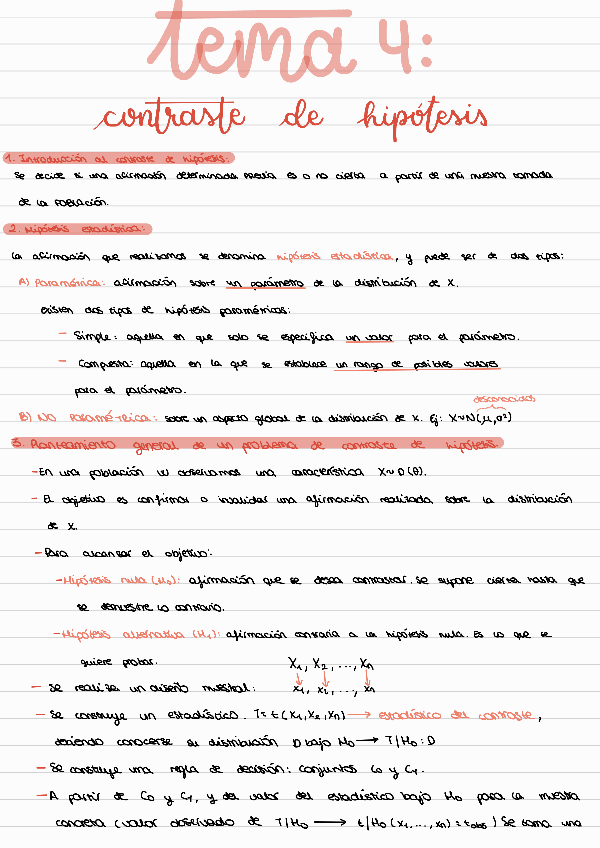 tema 4:
contraste de hipótesis
1. Introducción al contraste de hipótesis:
Se decide si una afirmación determinada previa es o no cierta a partir de una muestra tomada
de la población.
2. Hipótesis estadística:
La afirmación que realizamos se denomina hipótesis estadística, y puede ser de dos tipos:
A) Paramétrica: afirmación sobre un parámetro de la distribución de X.
Existen dos tipos de hipótesis paramétricas:
- Simple: aquella en que solo se especifica un valor para el parámetro.
- Compuesta: aquella en la que se establece un rango de posibles valores
para el parámetro.
desconocidos
B) NO Paramétrica: sobre un aspecto global de la distribución de X. Ej: X~N(μ,σ²)
3. Planteamiento general de un problema de contraste de hipótesis.
- En una población observamos una característica X~D(θ).
- El objetivo es confirmar o invalidar una afirmación realizada sobre la distribución
de X.
- Para alcanzar el objetivo:
- Hipótesis nula (H₀): afirmación que se desea contrastar. Se supone cierta hasta que
se demuestre lo contrario.
- Hipótesis alternativa (H₁): afirmación contraria a la hipótesis nula. Es lo que se
quiere probar. X₁, X₂, ..., Xn
- Se realiza un diseño muestral: x₁, x₂, ..., xn
- Se construye un estadístico. T = t(X₁,X₂,Xn) → estadístico del contraste,
debiendo conocerse su distribución D bajo H₀ → T/H₀:D
- Se construye una regla de decisión: conjuntos C₀ y C₁.
- A partir de C₀ y C₁, y del valor del estadístico bajo H₀ para la muestra
concreta (valor observado de T/H₀ → t/H₀ (x₁,...,xn) = tobs) Se toma una